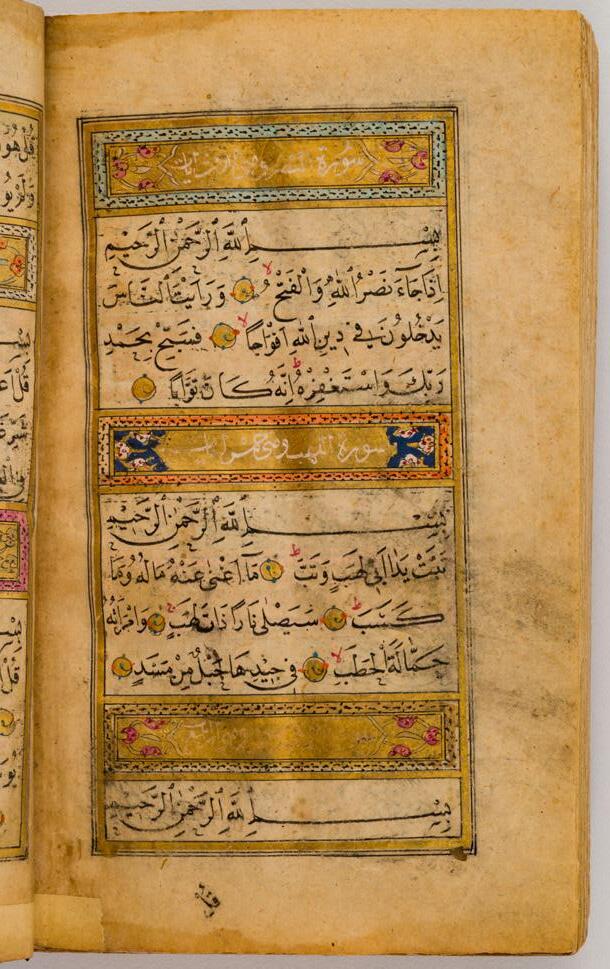 سُورَة النصر
بِسْمِ اللهِ الرَّحْمٰنِ الرَّحِيْمِ
اِذَا جَاءَ نَصْرُ اللهِ وَالْفَتْحُ وَرَاَيْتَ النَّاسَ
يَدْخُلُوْنَ فِي دِيْنِ اللهِ اَفْوَاجًا فَسَبِّحْ بِحَمْدِ
رَبِّكَ وَاسْتَغْفِرْهُ اِنَّهُ كَانَ تَوَّابًا
سورة اللهب وهي خمس ايات
بِسْمِ اللهِ الرَّحْمٰنِ الرَّحِيْمِ
تَبَّتْ يَدَا اَبِي لَهَبٍ وَتَبَّ مَا اَغْنٰى عَنْهُ مَالُهُ وَمَا
كَسَبَ سَيَصْلٰى نَارًا ذَاتَ لَهَبٍ وَامْرَاَتُهُ
حَمَّالَةَ الْحَطَبِ فِي جِيْدِهَا حَبْلٌ مِنْ مَسَدٍ
بِسْمِ اللهِ الرَّحْمٰنِ الرَّحِيْمِ